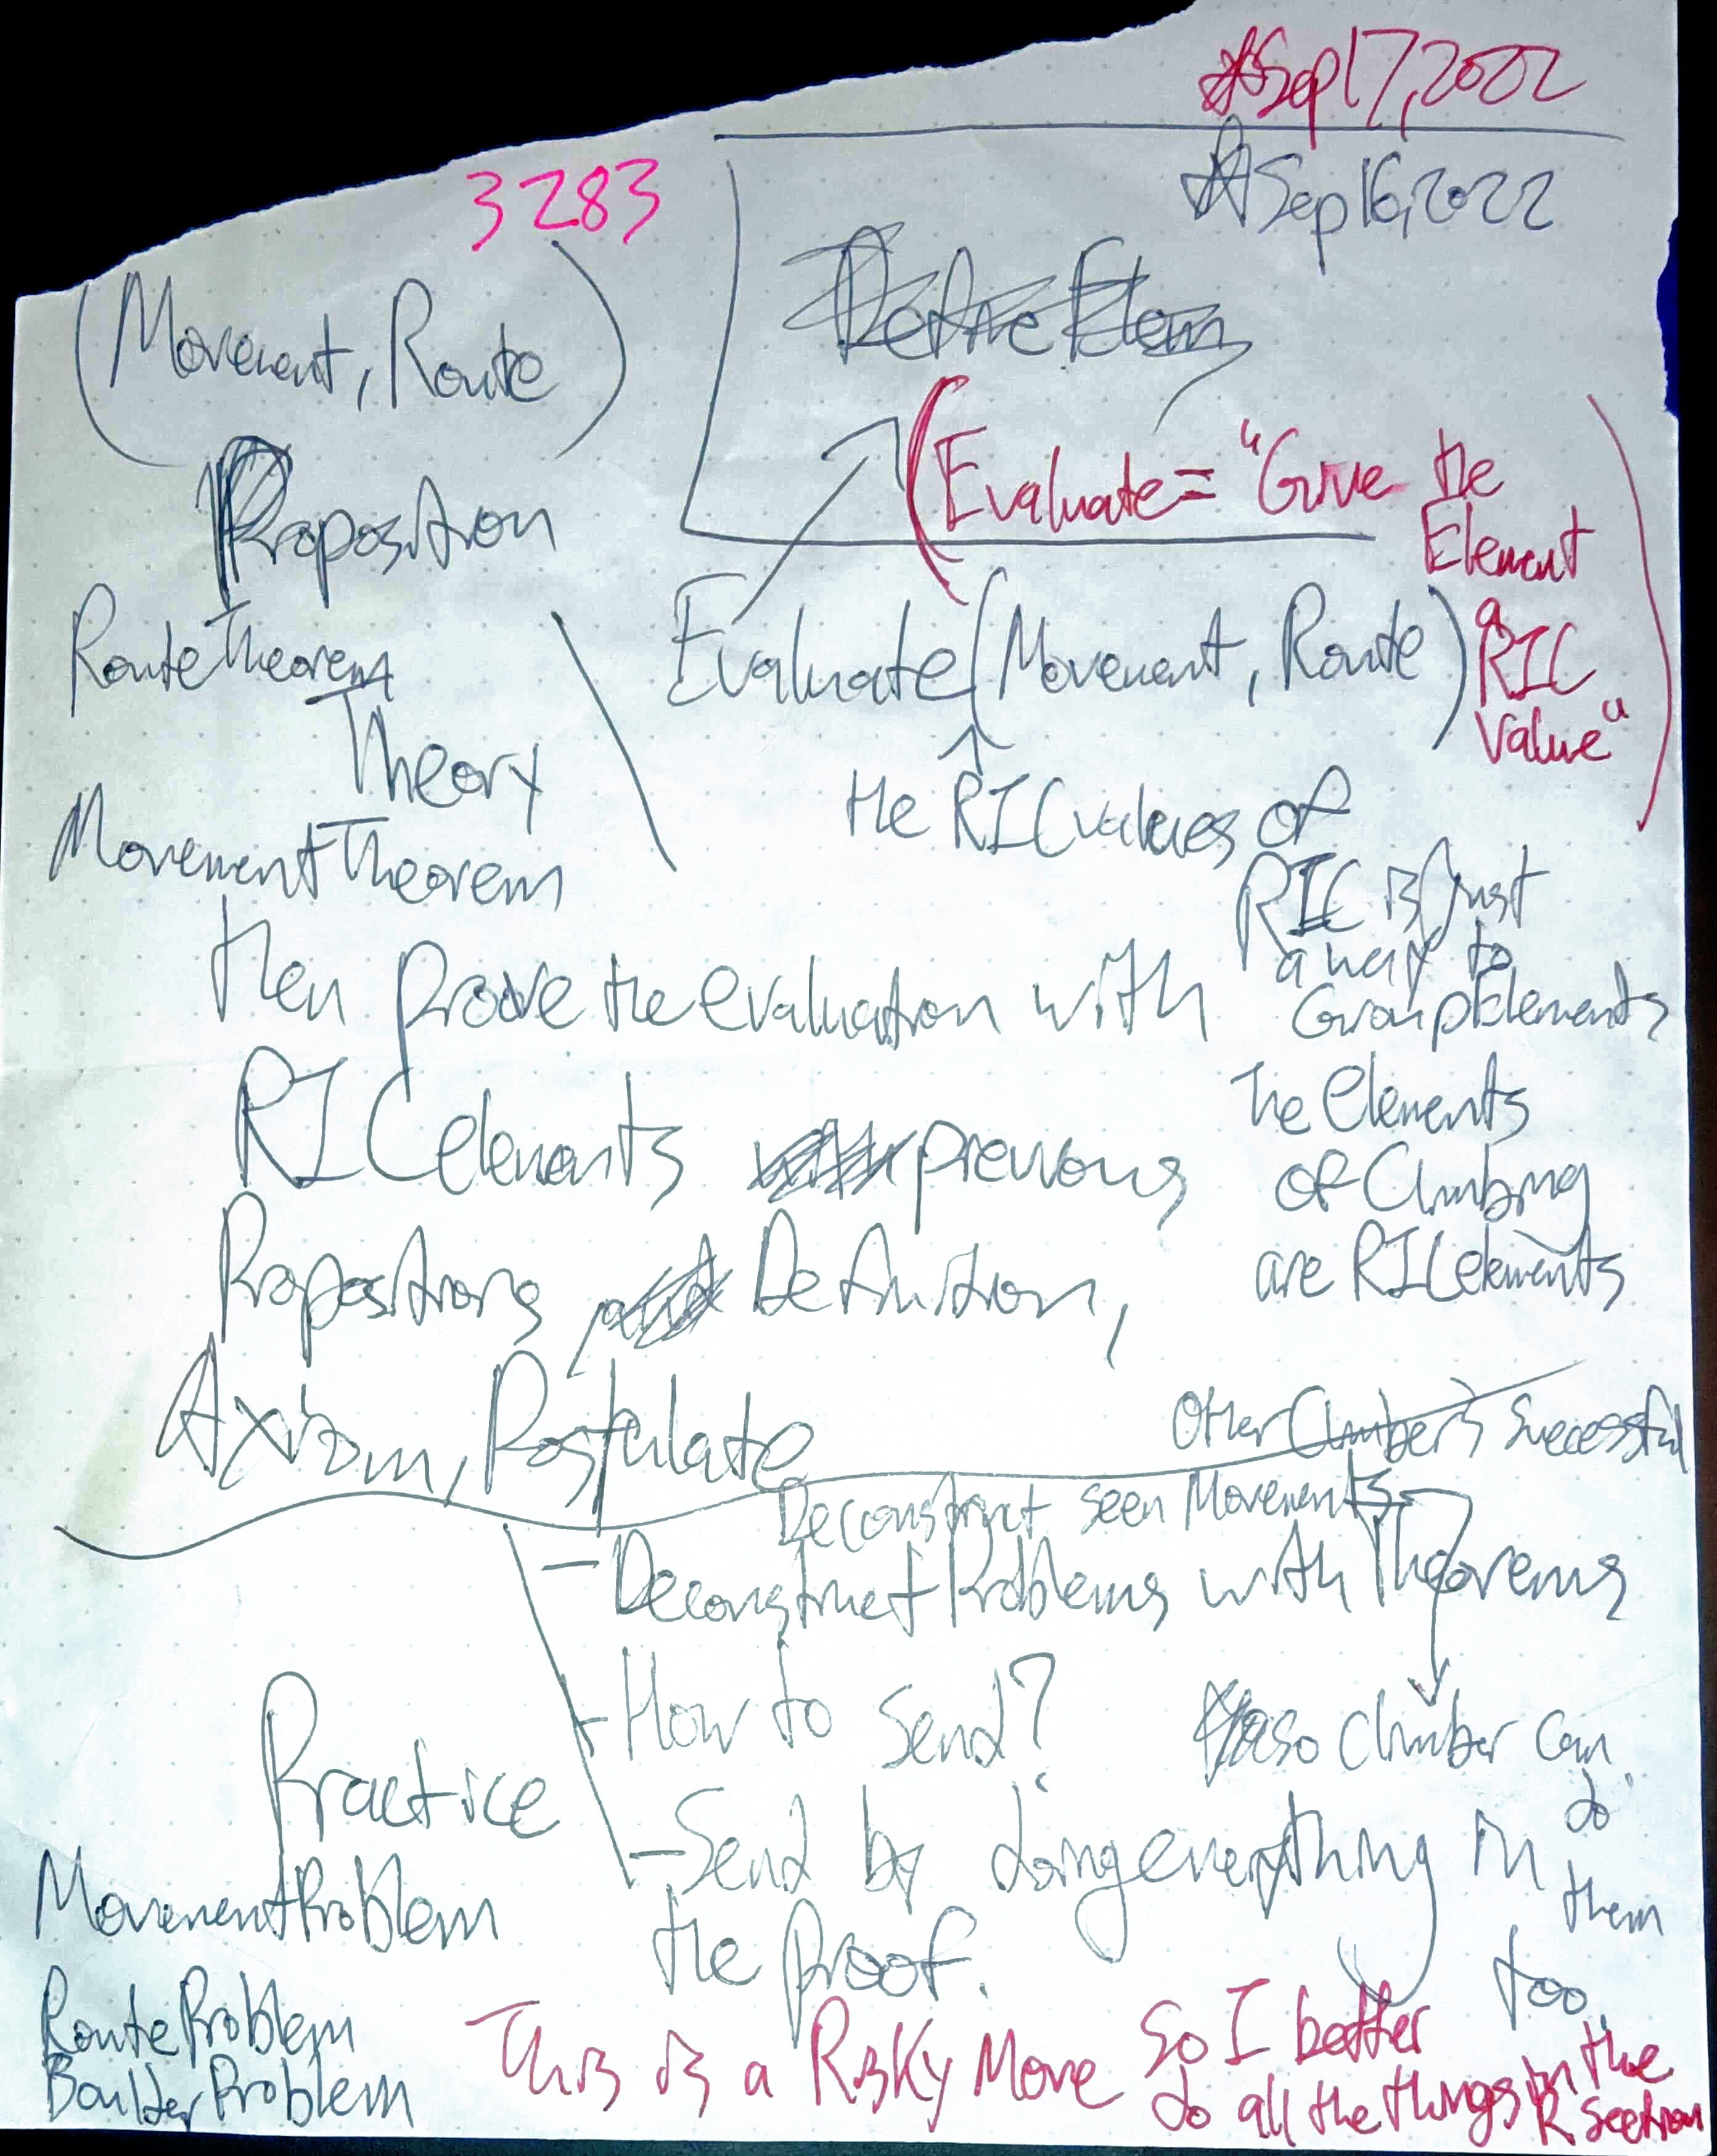 Sep 17, 2022
Sep 16, 2022
3283
(Movement, Route)
Define Elem
(Evaluate = "Give the
Element
a
RIC
Value")
Proposition
Route Theorem
Theory
Movement Theorem
Evaluate (Movement, Route)
the RIC values of
RIC is just
a way to
Group Elements
The Elements
of Climbing
are RIC elements
then prove the evaluation with
RIC elements previous
Propositions Definition,
Axiom, Postulate
Other Climber's Successful
Deconstruct seen Movements
- Deconstruct Problems with Theorems
- How to Send?
so climber can
do
them
too.
Practice
- Send by doing everything in
the Proof.
Movement Problem
Route Problem
Boulder Problem
This is a Risky Move so I better
do all the things in the
R section